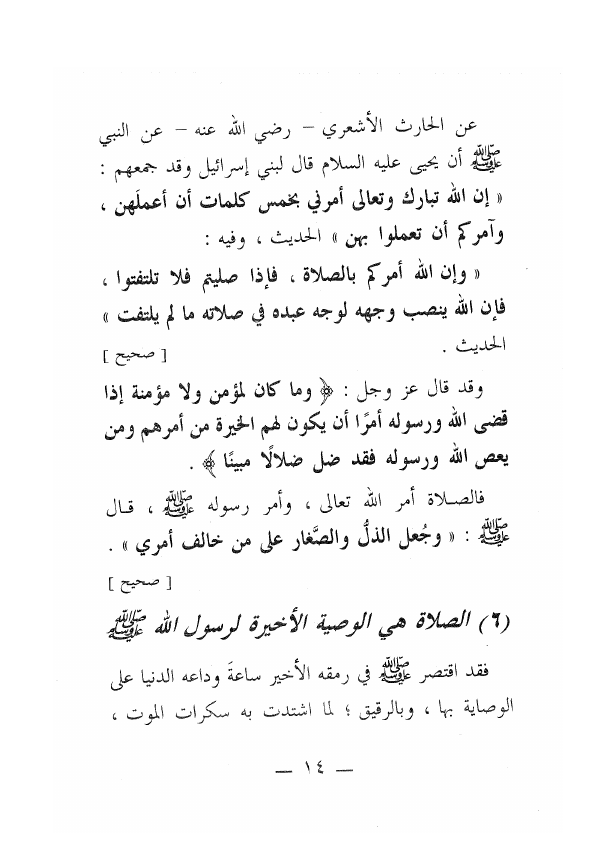 عن الحارث الأشعري – رضي الله عنه – عن النبي
ﷺ أن يحيى عليه السلام قال لبني إسرائيل وقد جمعهم :
« إن الله تبارك وتعالى أمرني بخمس كلمات أن أعملَهن ،
وآمركم أن تعملوا بهن » الحديث ، وفيه :
« وإن الله أمركم بالصلاة ، فإذا صليتم فلا تلتفتوا ،
فإن الله ينصب وجهه لوجه عبده في صلاته ما لم يلتفت »
الحديث . [ صحيح ]
وقد قال عز وجل : ﴿ وما كان لمؤمن ولا مؤمنة إذا
قضى الله ورسوله أمرًا أن يكون لهم الخيرة من أمرهم ومن
يعص الله ورسوله فقد ضل ضلالًا مبينًا ﴾ .
فالصلاة أمر الله تعالى ، وأمر رسوله ﷺ ، قال
ﷺ : « وجُعل الذلُّ والصَّغار على من خالف أمري » .
[ صحيح ]
(٦) الصلاة هي الوصية الأخيرة لرسول الله ﷺ
فقد اقتصر ﷺ في رمقه الأخير ساعةَ وداعه الدنيا على
الوصاية بها ، وبالرقيق ؛ لما اشتدت به سكرات الموت ،
— ١٤ —